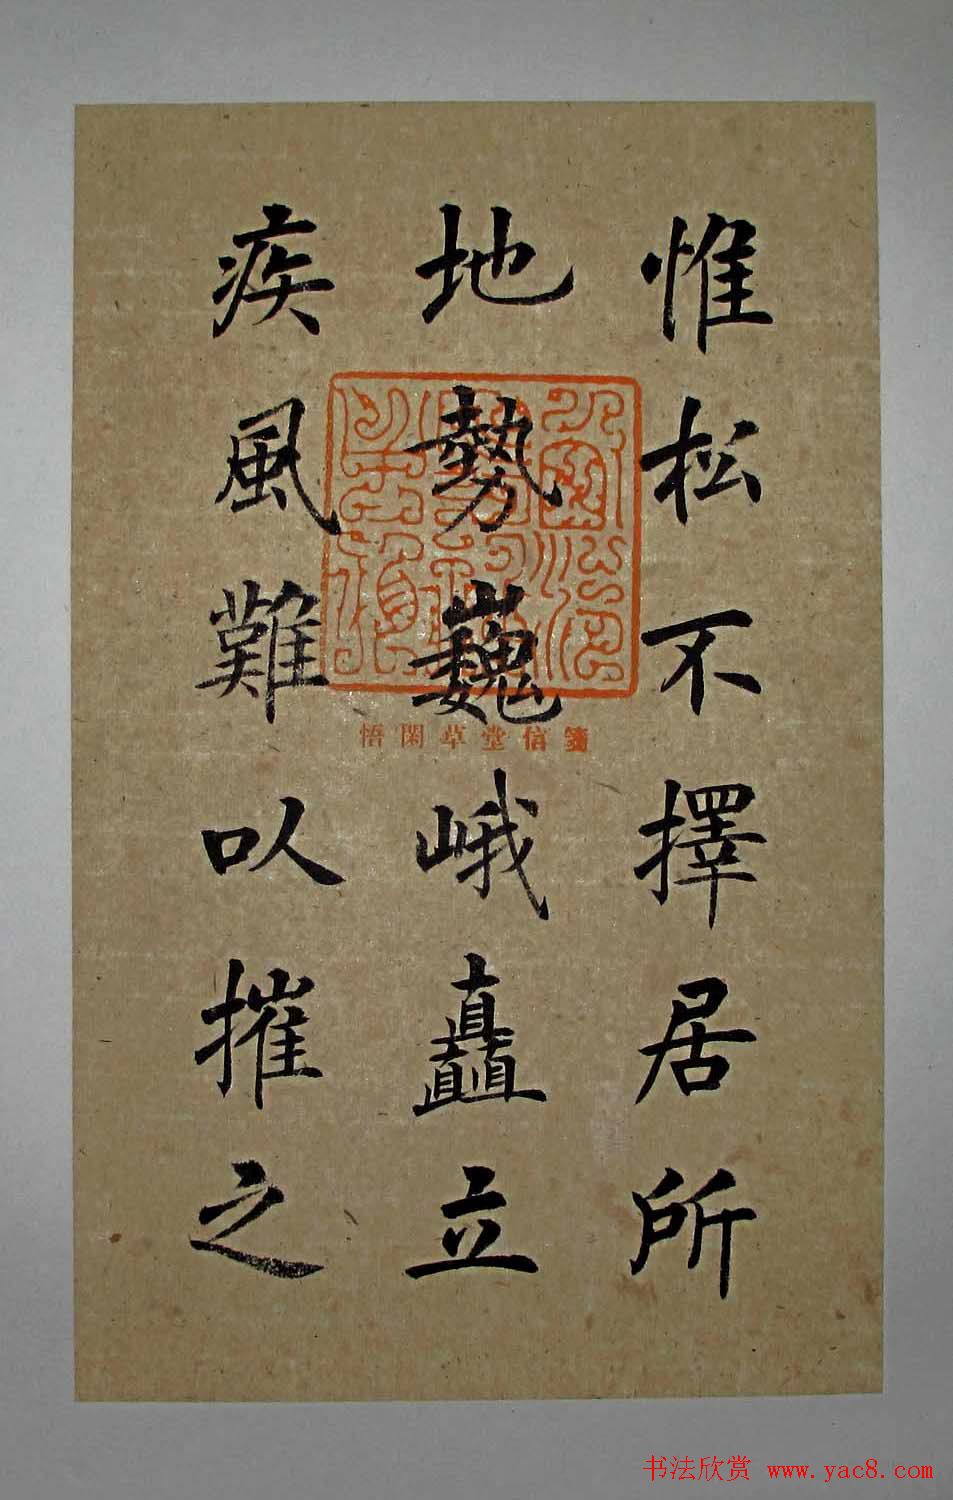 惟松不擇居所
地勢巍峨矗立
疾風難以摧之
悟閑草堂信箋
书法欣赏 www.yac8.com